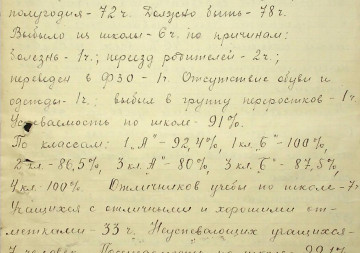 полугодия - 72 ч. Должно быть - 78 ч.
Выбыло из школы - 6 ч. по причинам:
болезнь - 1 ч.; переезд родителей - 2 ч.;
переведен в ФЗО - 1 ч. Отсутствие обуви и
одежды - 1 ч.; выбыл в группу переростков - 1 ч.
Успеваемость по школе - 91%.
По классам: 1 „А" - 92,4%, 1 кл. „Б" - 100%,
2 кл. - 86,5%, 3 кл. „А" - 80%, 3 кл. „Б" - 87,5%,
4 кл. - 100%. Отличников учебы по школе - 7 ч.
Учащихся с отличными и хорошими от-
метками - 33 ч. Неуспевающих учащихся -
7 человек. по школе -